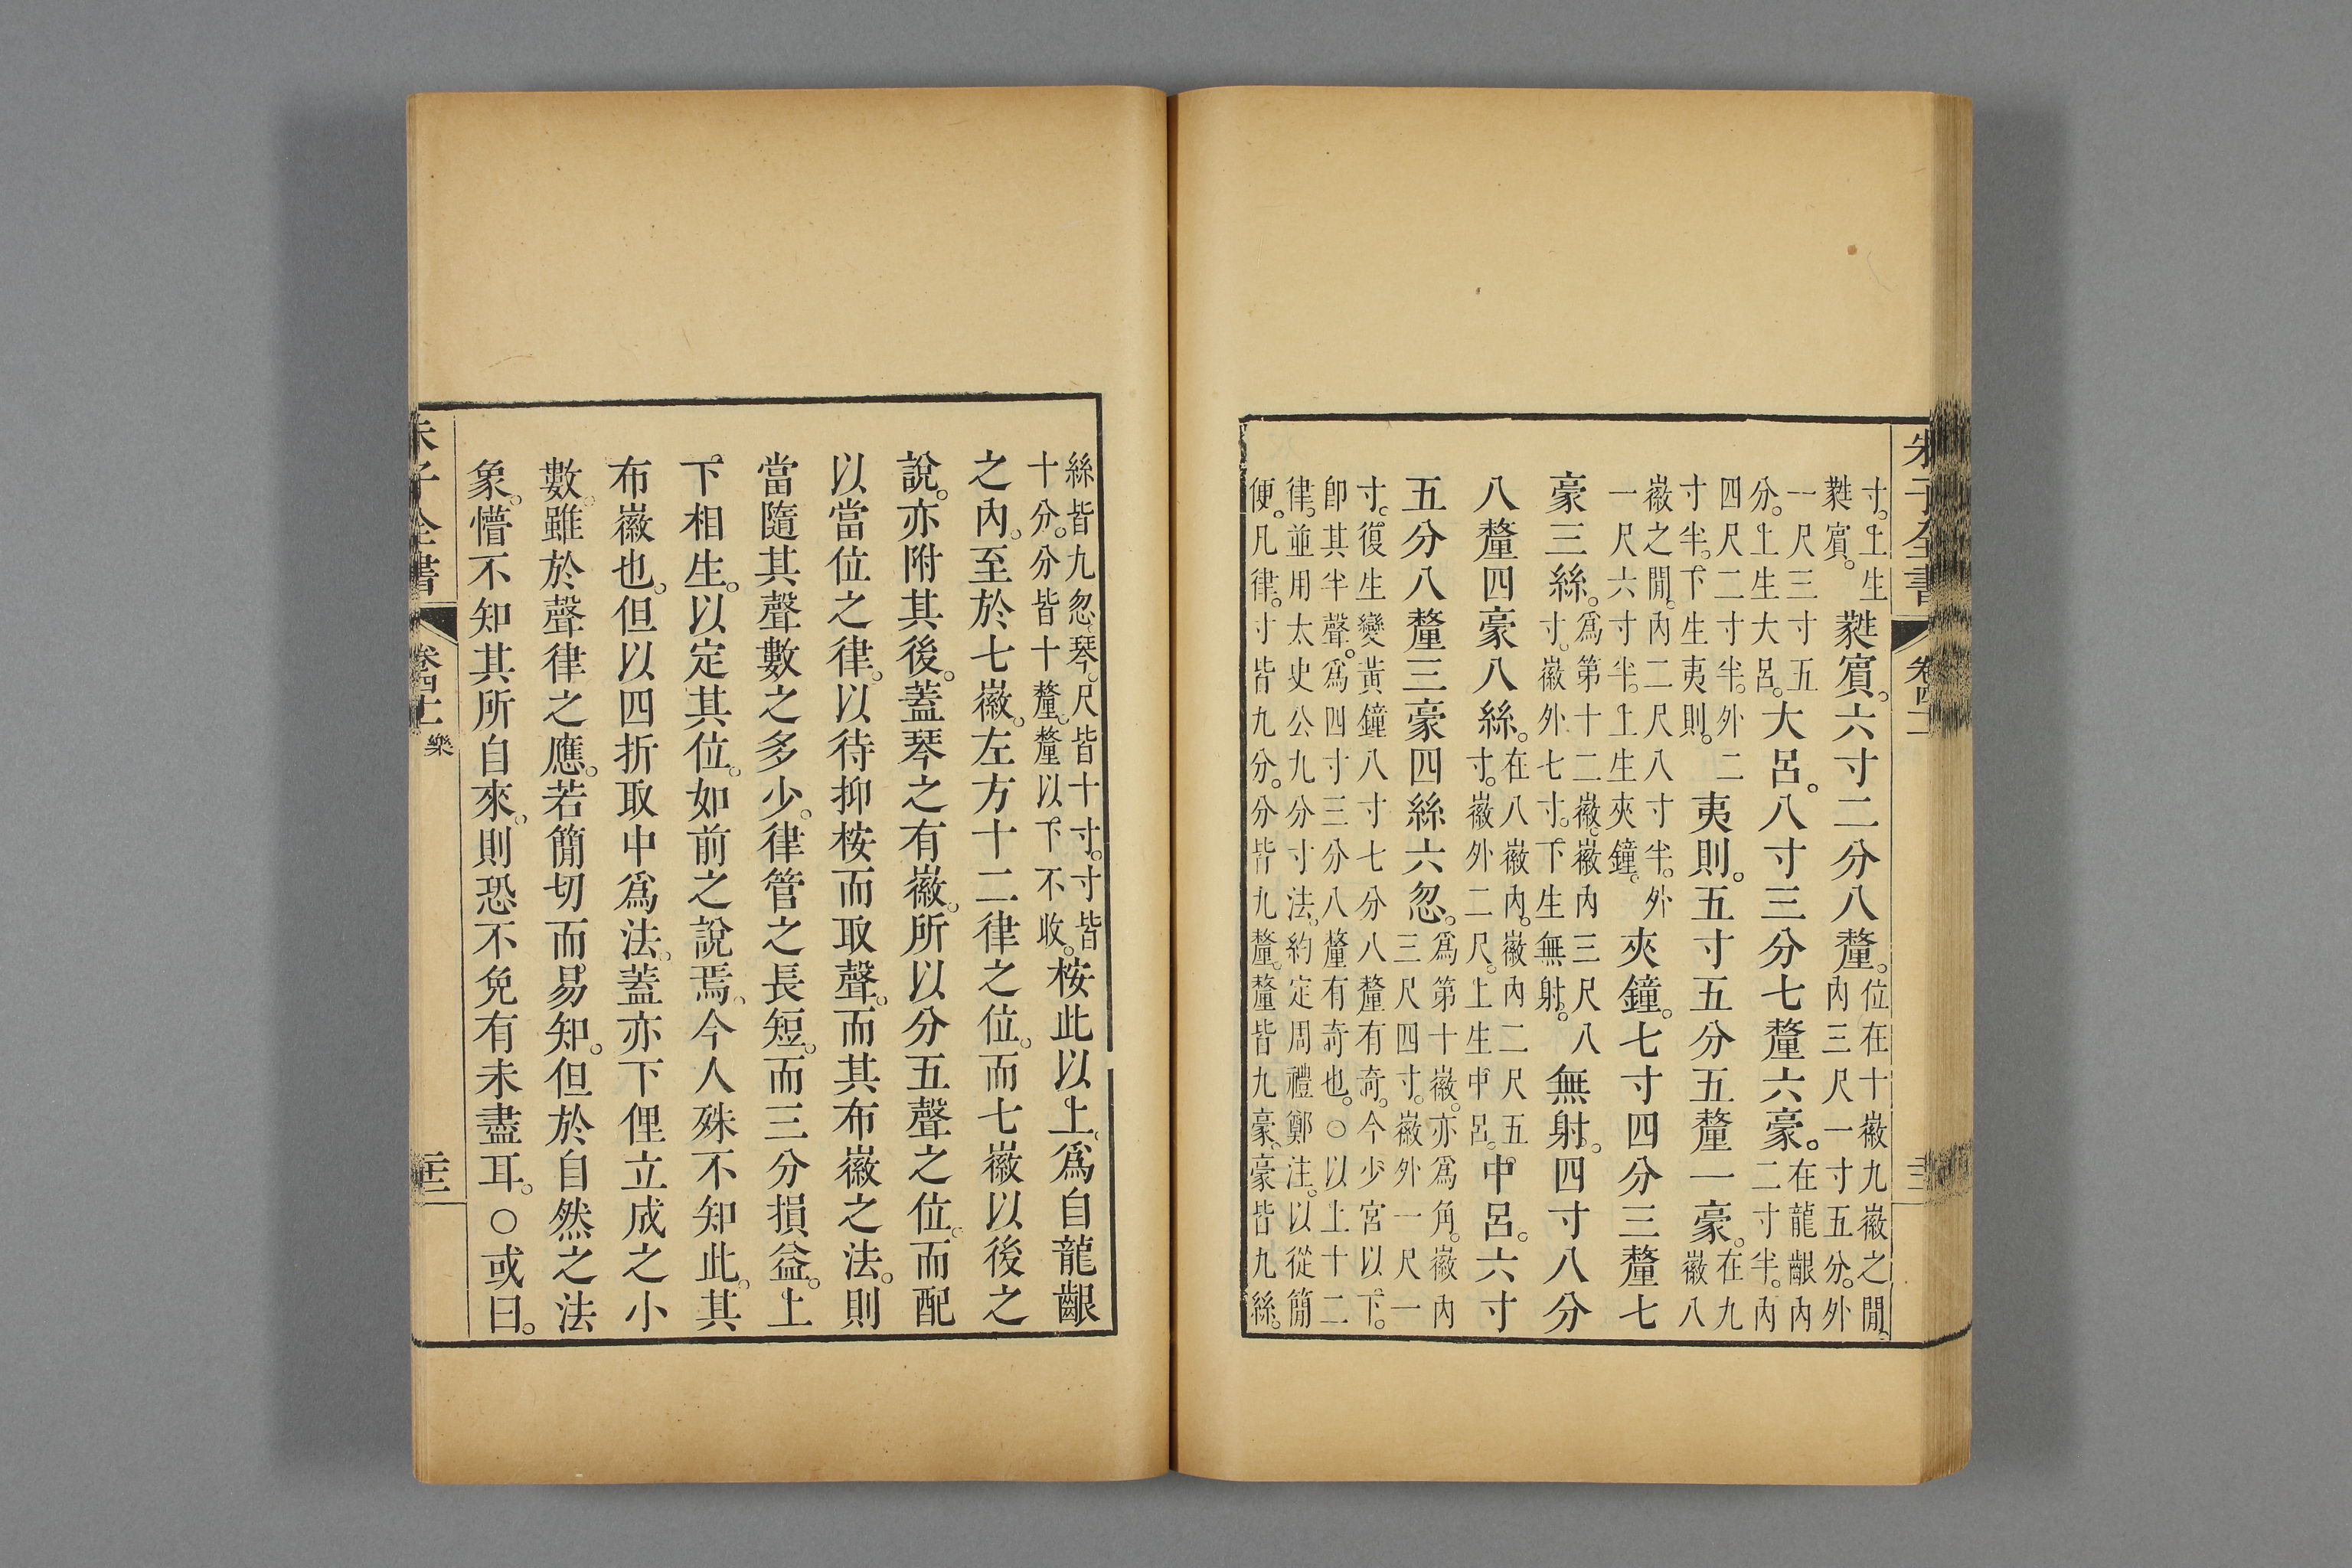 朱子全書
寸。上生
蕤賓。
蕤賓。六寸二分八釐。
位在十徽九徽之閒。
內三尺一寸五分。外
一尺三寸五
分。上生大呂。
大呂。八寸三分七釐六豪。
在龍齦內
二寸半。內
四尺二寸半。外二
寸半。下生夷則。
夷則。五寸五分五釐一豪。
在九
徽八
徽之閒。內二尺八寸半。外
一尺六寸半。上生夾鐘。
夾鐘。七寸四分三釐七
豪三絲。
爲第十二徽。徽內三尺八
寸。徽外七寸。下生無射。
無射。四寸八分
八釐四豪八絲。
在八徽內。徽內二尺五
寸。徽外二尺。上生中呂。
中呂。六寸
五分八釐三豪四絲六忽。
爲第十徽。亦爲角。徽內
三尺四寸。徽外一尺一
寸。復生變黃鐘八寸七分八釐有奇。今少宮以下。
卽其半聲。爲四寸三分八釐有奇也。○以上十二
律。並用太史公九分寸法。約定周禮鄭注。以從簡
便。凡律。寸皆九分。分皆九釐。釐皆九豪。豪皆九絲。
絲皆九忽。琴。尺皆十寸。寸皆
十分。分皆十釐。釐以下不收。
桉此以上。爲自龍齦
之內。至於七徽。左方十二律之位。而七徽以後之
說。亦附其後。蓋琴之有徽。所以分五聲之位。而配
以當位之律。以待抑桉而取聲。而其布徽之法。則
當隨其聲數之多少。律管之長短。而三分損益。上
下相生。以定其位。如前之說焉。今人殊不知此。其
布徽也。但以四折取中爲法。蓋亦下俚立成之小
數。雖於聲律之應。若簡切而易知。但於自然之法
象。懵不知其所自來。則恐不免有未盡耳。○或曰。
朱子全書
卷四十一
樂